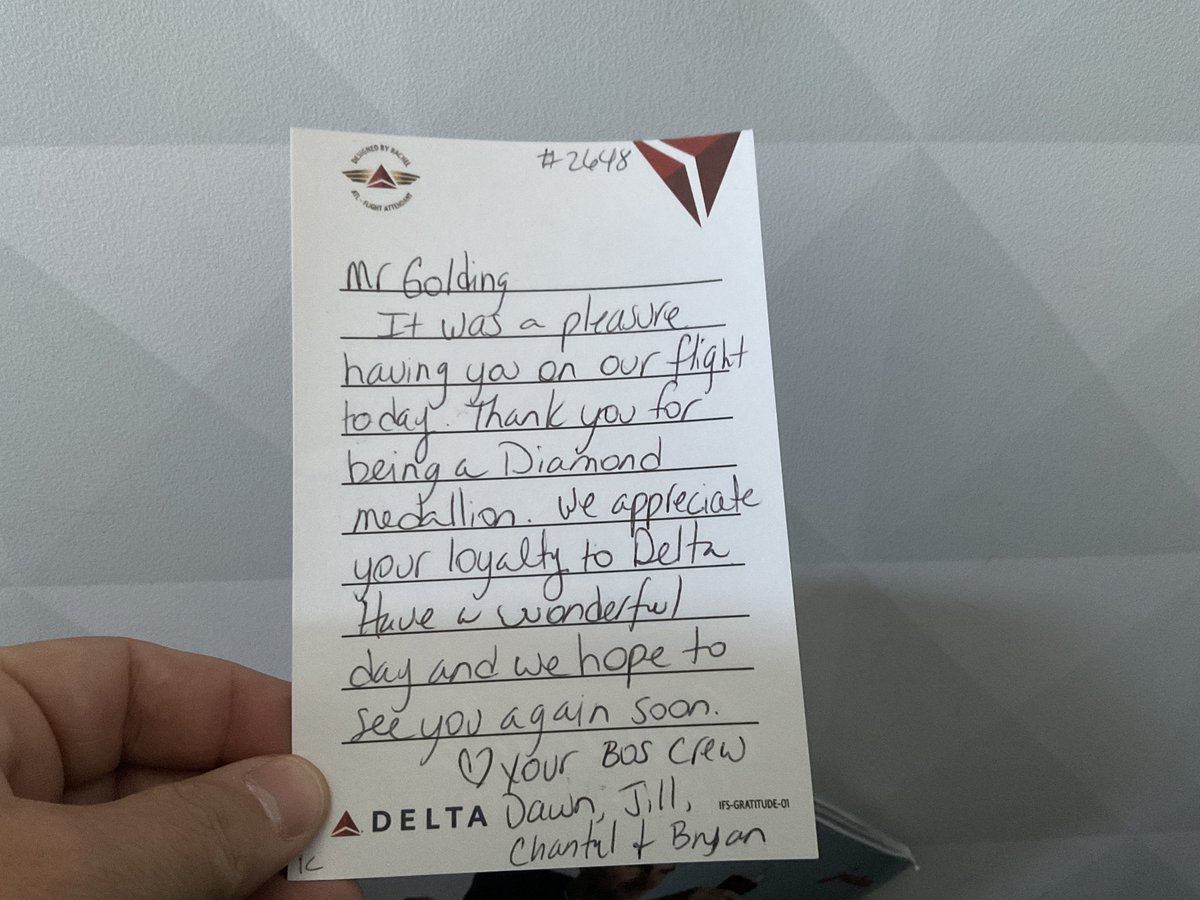 DESIGNED BY RACHEL
ATL - FLIGHT ATTENDANT
#2648
Mr Golding
It was a pleasure
having you on our flight
today. Thank you for
being a Diamond
medallion. We appreciate
your loyalty to Delta.
Have a wonderful
day and we hope to
see you again soon.
♡ your BOS Crew
Dawn, Jill,
Chantal + Bryan
DELTA
IFS-GRATITUDE-01
1C